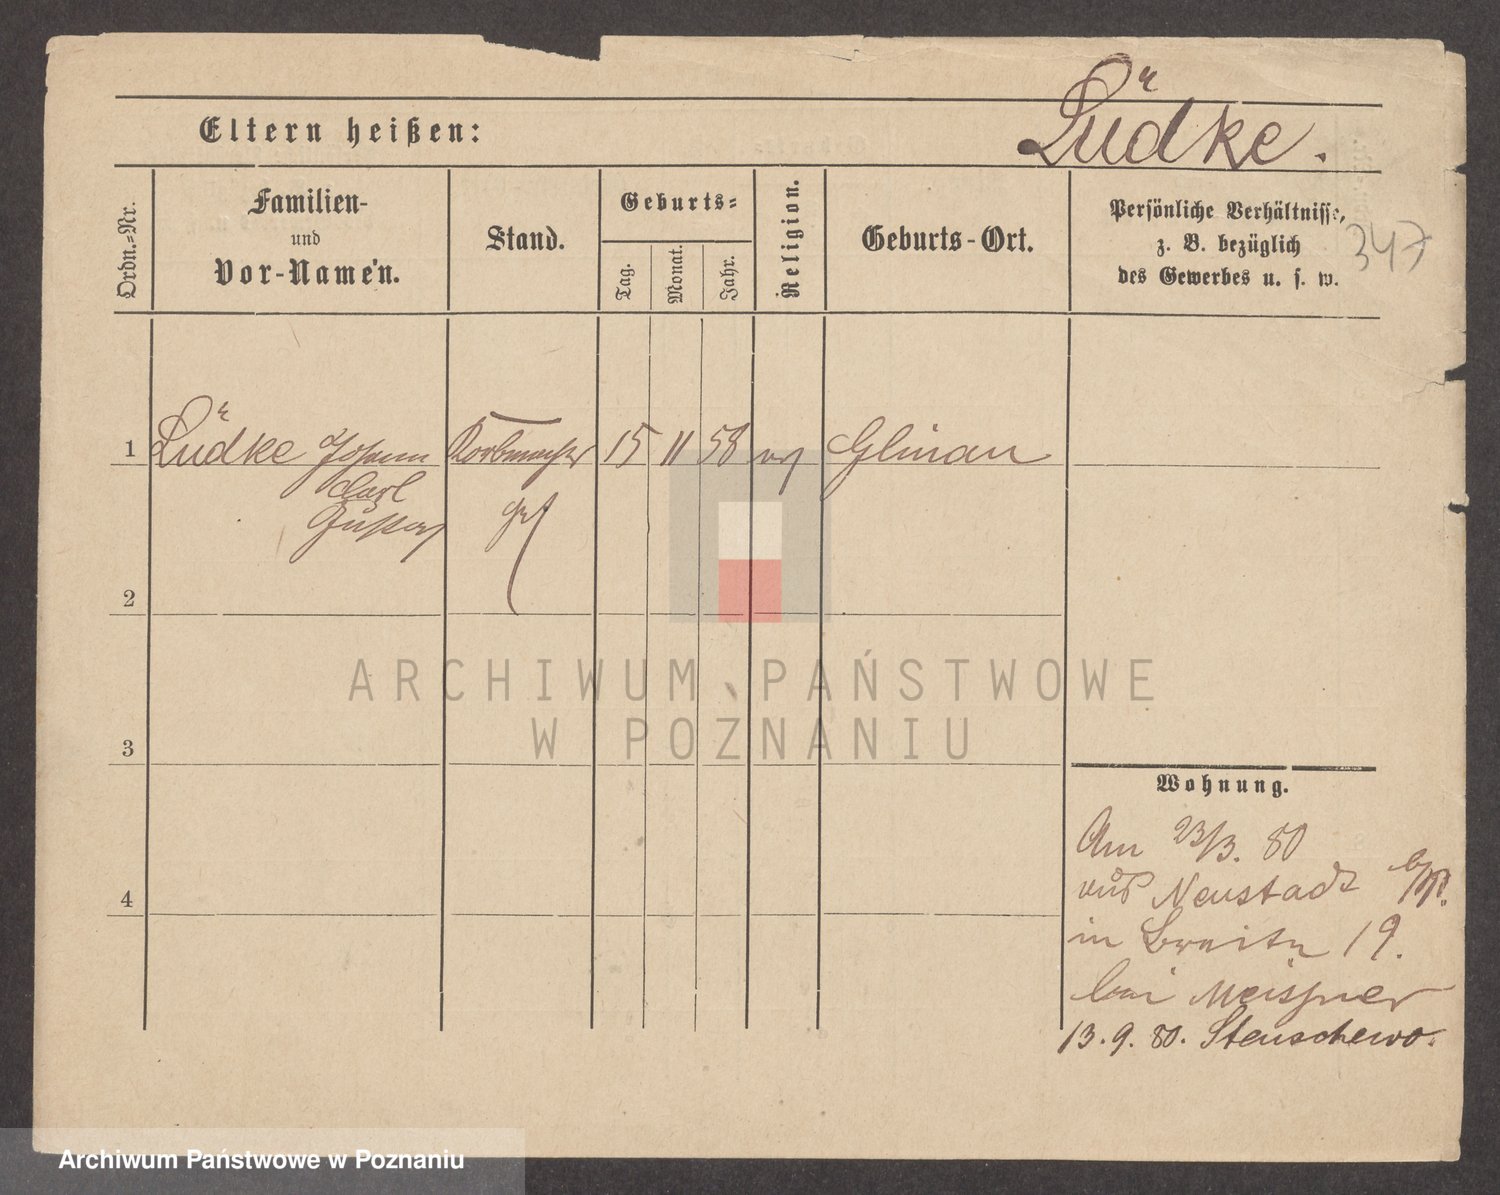 Lüdke.
Eltern heißen:
Ordn.=Nr.
Familien-
und
Vor-Namen.
Stand.
Geburts=
Tag.
Monat.
Jahr.
Religion.
Geburts-Ort.
Persönliche Verhältnisse,
z. B. bezüglich
des Gewerbes u. s. w.
347
1 Lüdke Johann Korbmacher 15 11 58 ev Glinau
Carl
Gustav
2
3
4
Wohnung.
Am 23/3. 80
aus Neustadt
in Breite 19.
bei Meissner
13. 9. 80. Stenschewo.
ARCHIWUM PAŃSTWOWE
W POZNANIU
Archiwum Państwowe w Poznaniu